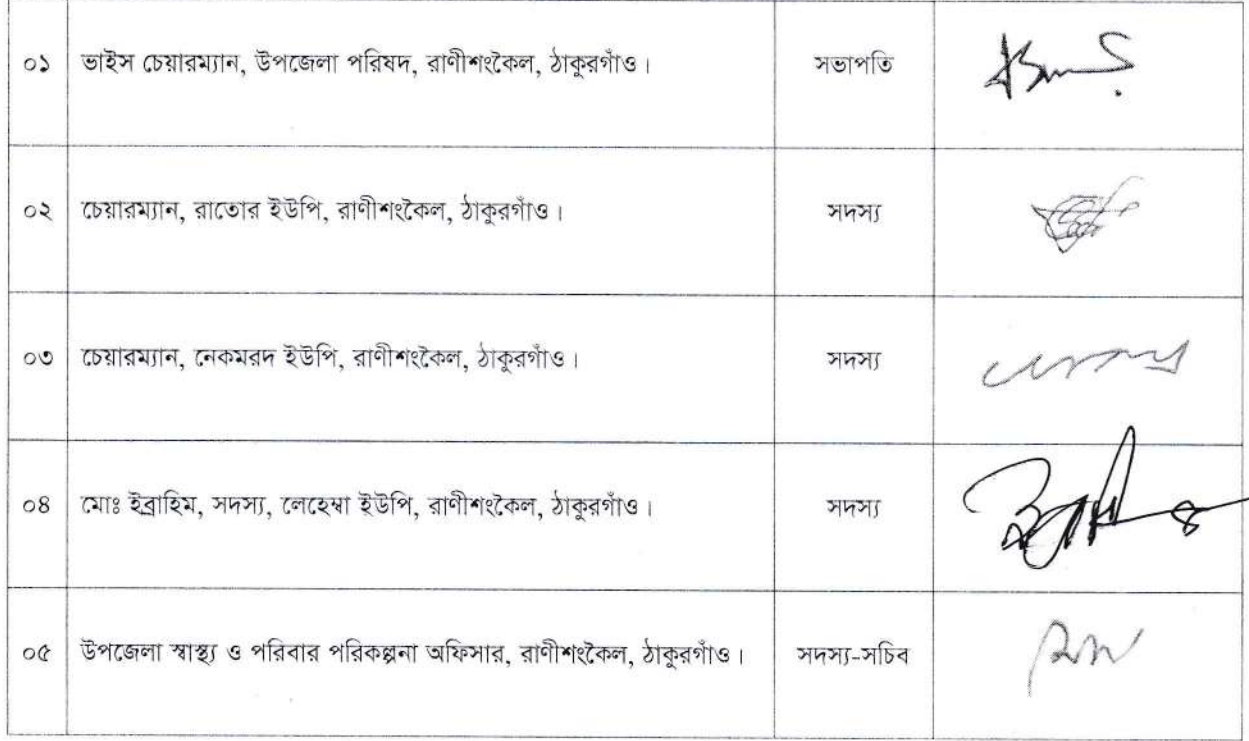 ০১ ভাইস চেয়ারম্যান, উপজেলা পরিষদ, রাণীশংকৈল, ঠাকুরগাঁও। সভাপতি
০২ চেয়ারম্যান, রাতোর ইউপি, রাণীশংকৈল, ঠাকুরগাঁও। সদস্য
০৩ চেয়ারম্যান, নেকমরদ ইউপি, রাণীশংকৈল, ঠাকুরগাঁও। সদস্য
০৪ মোঃ ইব্রাহিম, সদস্য, লেহেম্বা ইউপি, রাণীশংকৈল, ঠাকুরগাঁও। সদস্য
০৫ উপজেলা স্বাস্থ্য ও পরিবার পরিকল্পনা অফিসার, রাণীশংকৈল, ঠাকুরগাঁও। সদস্য-সচিব